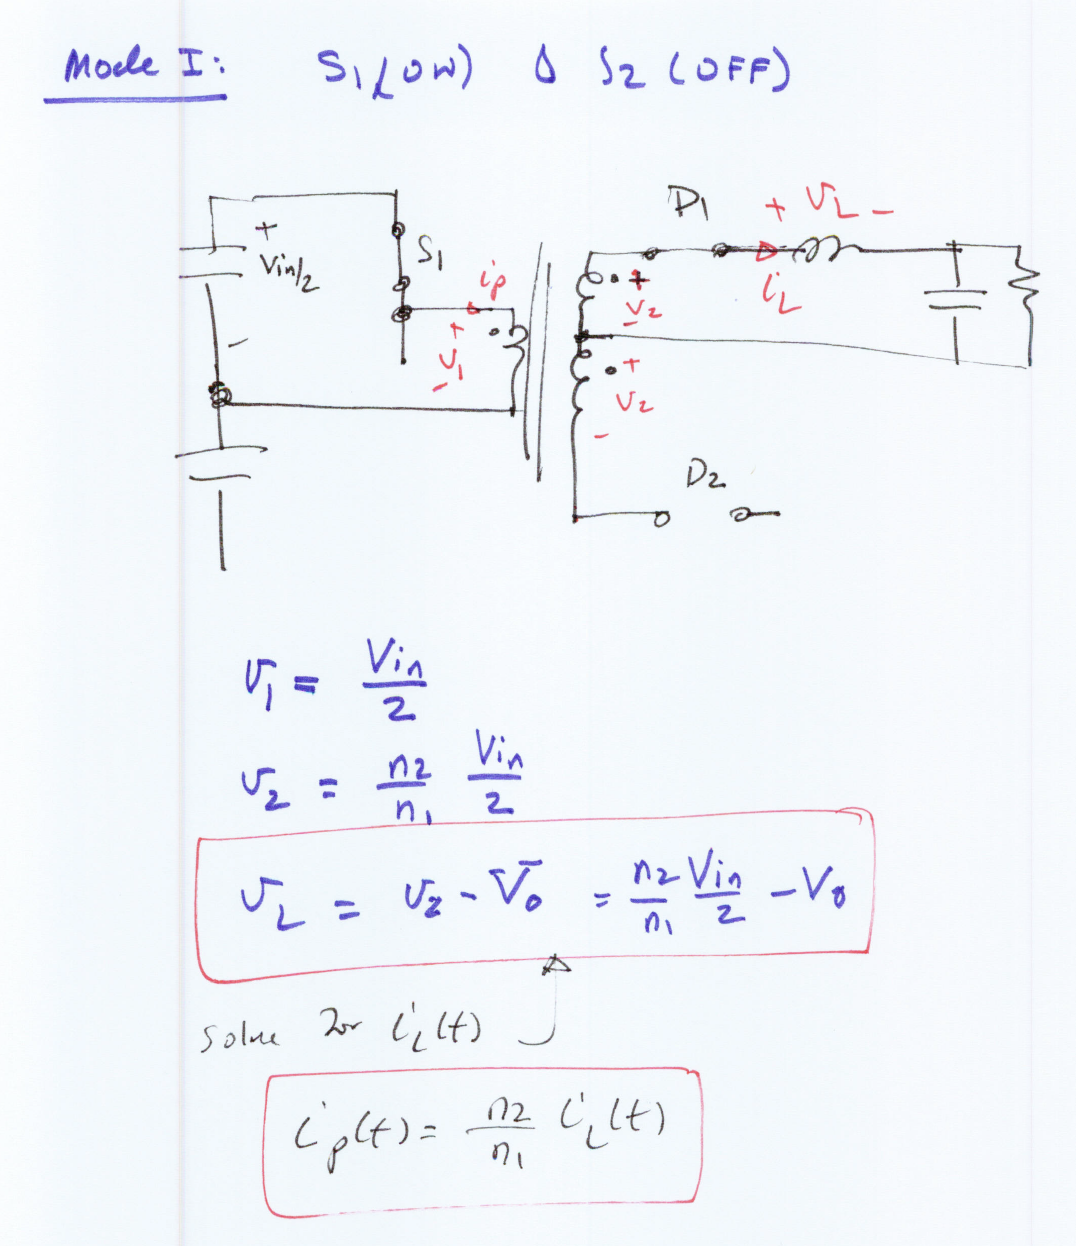 Mode I: S1 (ON) & S2 (OFF)
+
Vin/2
-
S1
ip
+
V1
-
D1
+ VL -
iL
+
V2
-
+
V2
-
D2
V1 = Vin/2
V2 = n2/n1 Vin/2
VL = V2 - Vo = n2/n1 Vin/2 - Vo
solve for iL(t)
ip(t) = n2/n1 iL(t)